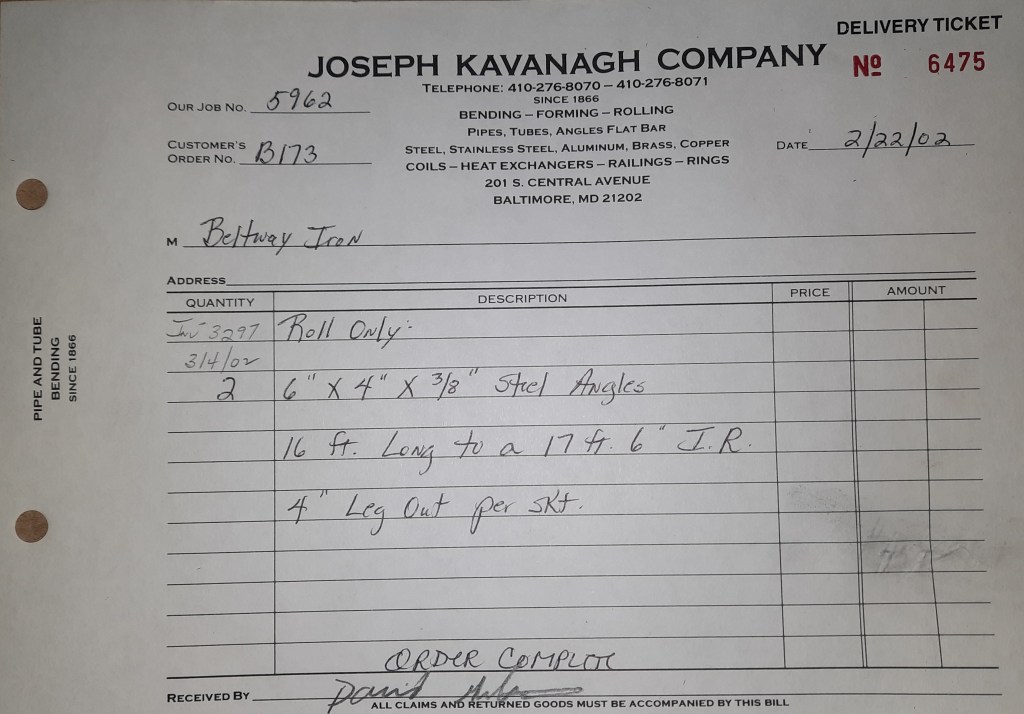 DELIVERY TICKET
JOSEPH KAVANAGH COMPANY
Nº 6475
TELEPHONE: 410-276-8070 – 410-276-8071
SINCE 1866
OUR JOB NO. 5962
BENDING – FORMING – ROLLING
PIPES, TUBES, ANGLES FLAT BAR
CUSTOMER'S
ORDER NO. B173
STEEL, STAINLESS STEEL, ALUMINUM, BRASS, COPPER
DATE 2/22/02
COILS – HEAT EXCHANGERS – RAILINGS – RINGS
201 S. CENTRAL AVENUE
BALTIMORE, MD 21202
M Beltway Iron
ADDRESS
QUANTITY DESCRIPTION PRICE AMOUNT
Inv 3297 Roll Only:
3/4/02
2 6" X 4" X 3/8" Steel Angles
16 ft. Long to a 17 ft. 6" I.R.
4" Leg Out per skt.
ORDER COMPLETE
RECEIVED BY David
ALL CLAIMS AND RETURNED GOODS MUST BE ACCOMPANIED BY THIS BILL
PIPE AND TUBE
BENDING
SINCE 1866